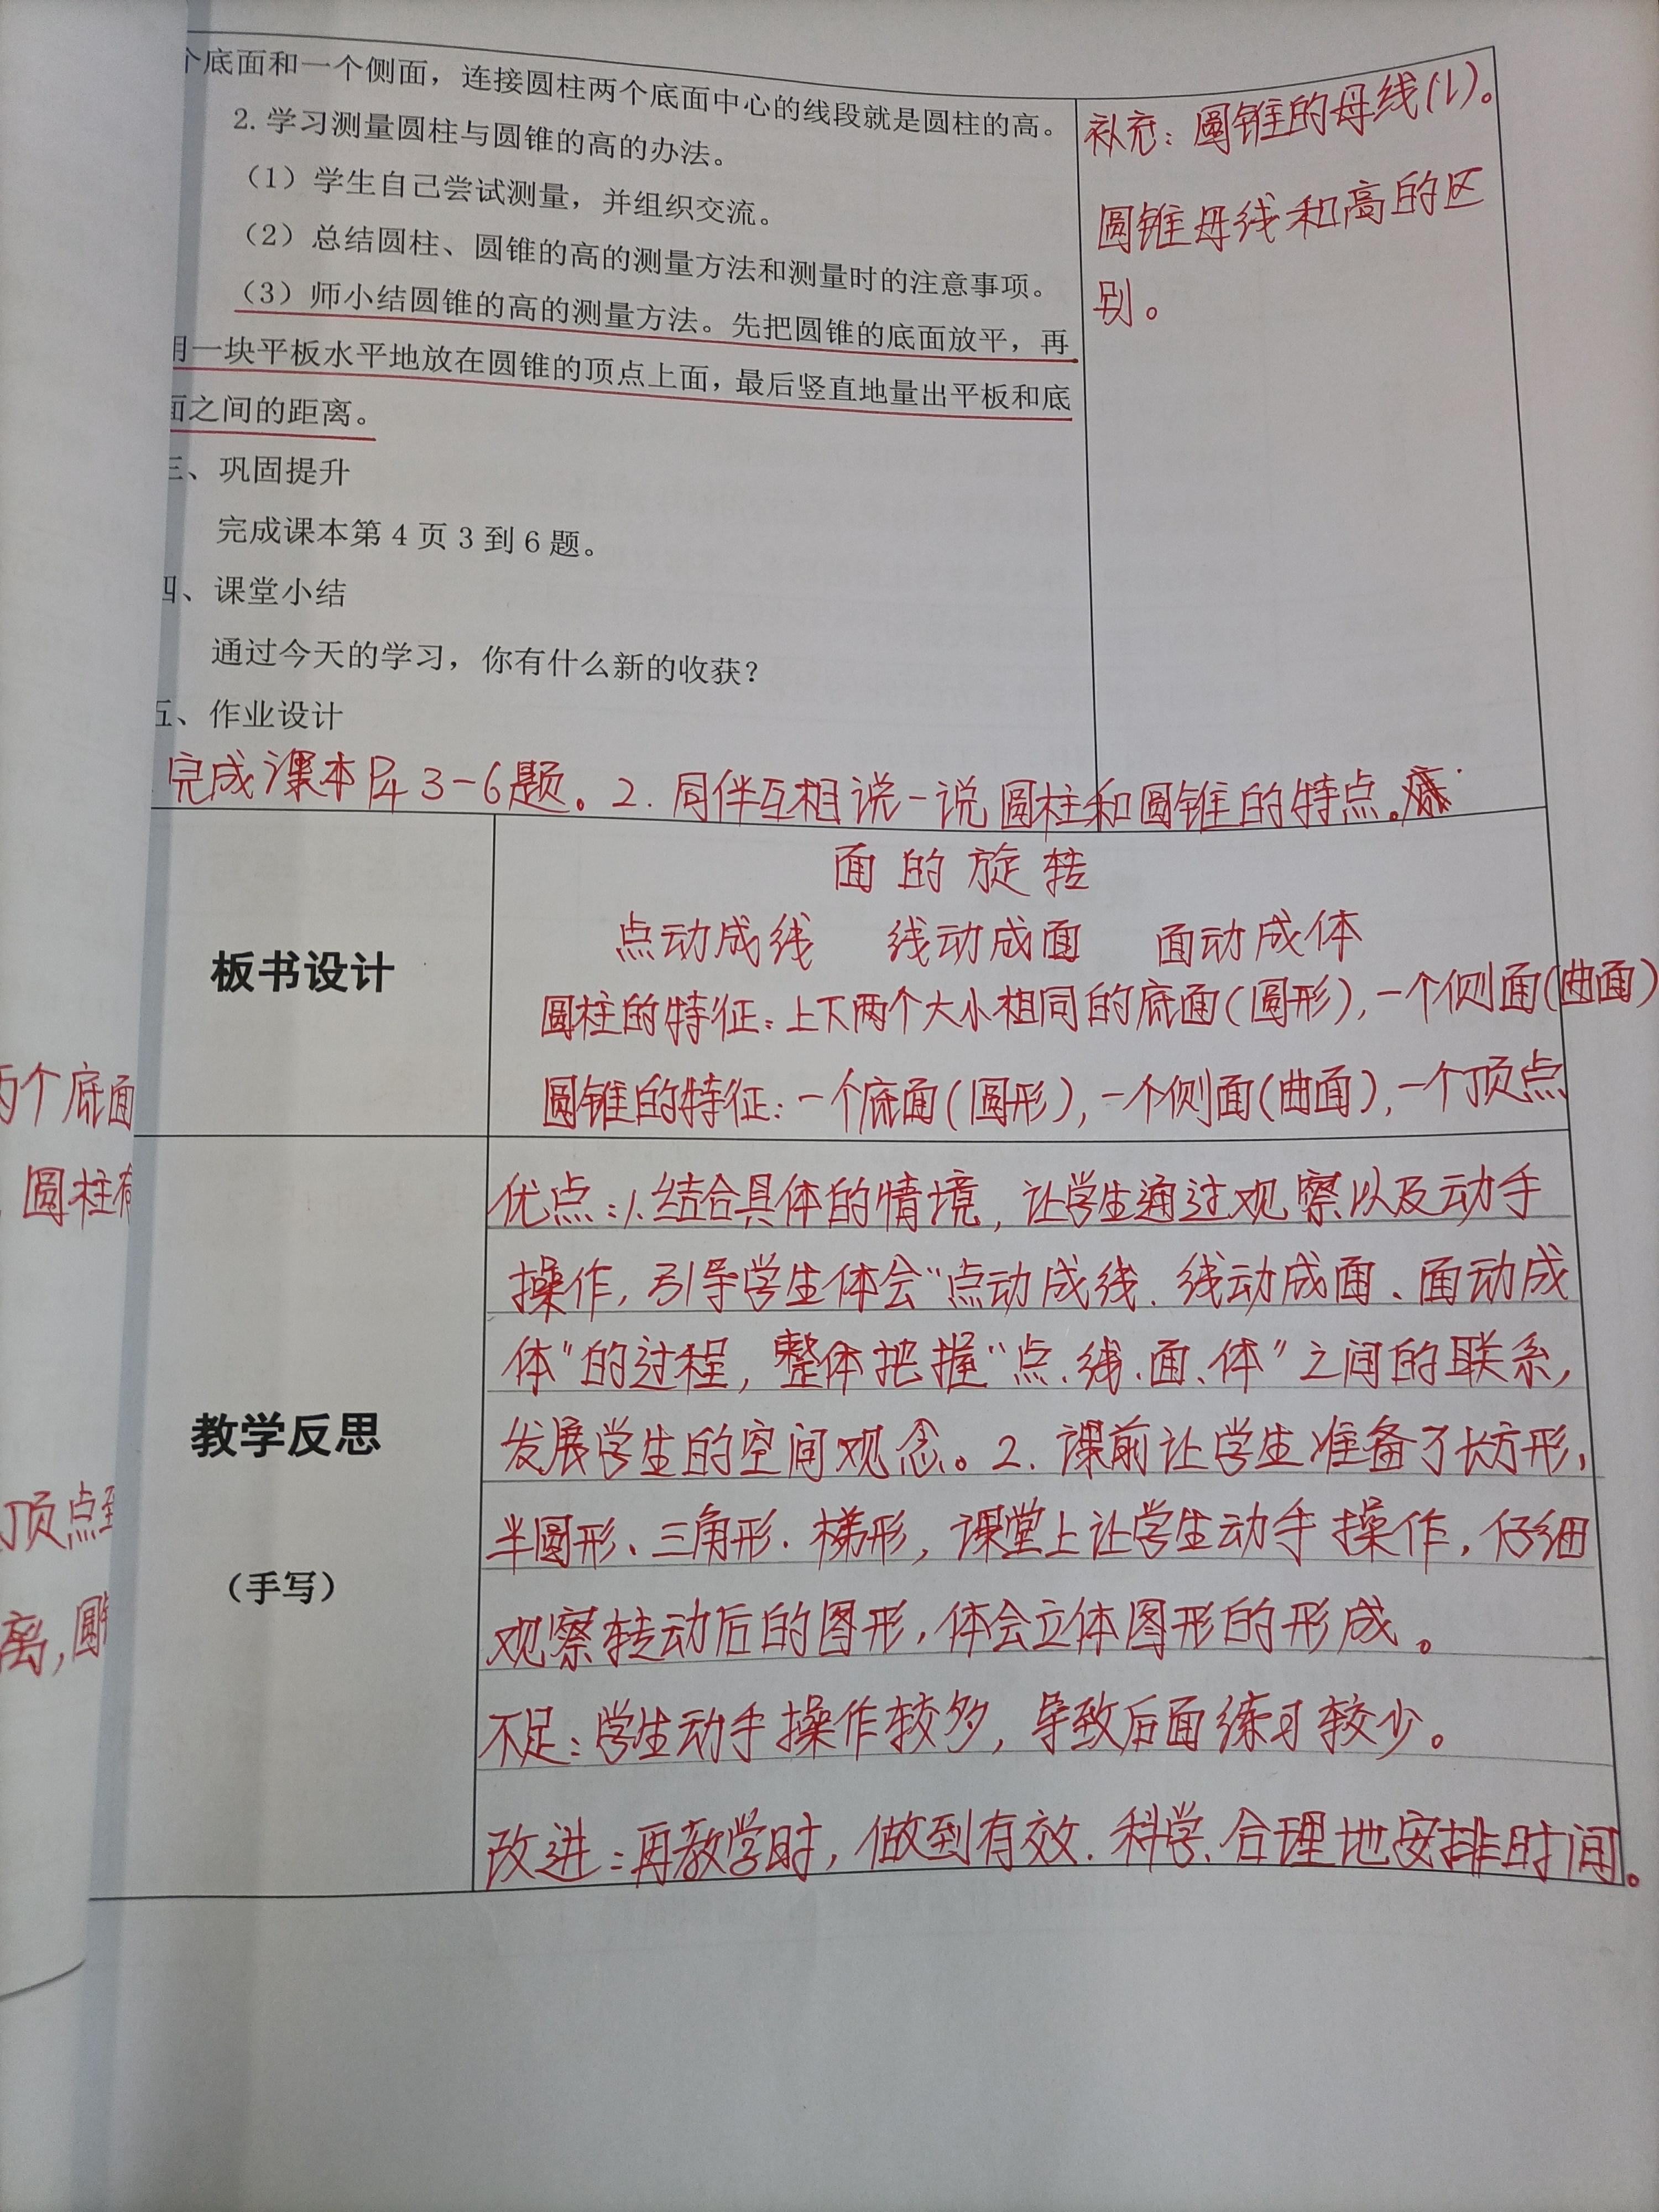 个底面和一个侧面，连接圆柱两个底面中心的线段就是圆柱的高。
2. 学习测量圆柱与圆锥的高的办法。
（1）学生自己尝试测量，并组织交流。
（2）总结圆柱、圆锥的高的测量方法和测量时的注意事项。
（3）师小结圆锥的高的测量方法。先把圆锥的底面放平，再
用一块平板水平地放在圆锥的顶点上面，最后竖直地量出平板和底
面之间的距离。
三、巩固提升
完成课本第 4 页 3 到 6 题。
四、课堂小结
通过今天的学习，你有什么新的收获？
五、作业设计
补充：圆锥的母线(l)。
圆锥母线和高的区
别。
完成课本P4 3-6题。2. 同伴互相说一说圆柱和圆锥的特点。
板书设计
面的旋转
点动成线 线动成面 面动成体
圆柱的特征：上下两个大小相同的底面(圆形)，一个侧面(曲面)
圆锥的特征：一个底面(圆形)，一个侧面(曲面)，一个顶点
教学反思
（手写）
优点：1.结合具体的情境，让学生通过观察以及动手
操作，引导学生体会“点动成线、线动成面、面动成
体”的过程，整体把握“点、线、面、体”之间的联系，
发展学生的空间观念。2. 课前让学生准备了长方形、
半圆形、三角形、梯形，课堂上让学生动手操作，仔细
观察转动后的图形，体会立体图形的形成。
不足：学生动手操作较多，导致后面练习较少。
改进：再教学时，做到有效、科学、合理地安排时间。
两个底面
圆柱有
顶点到
离，圆